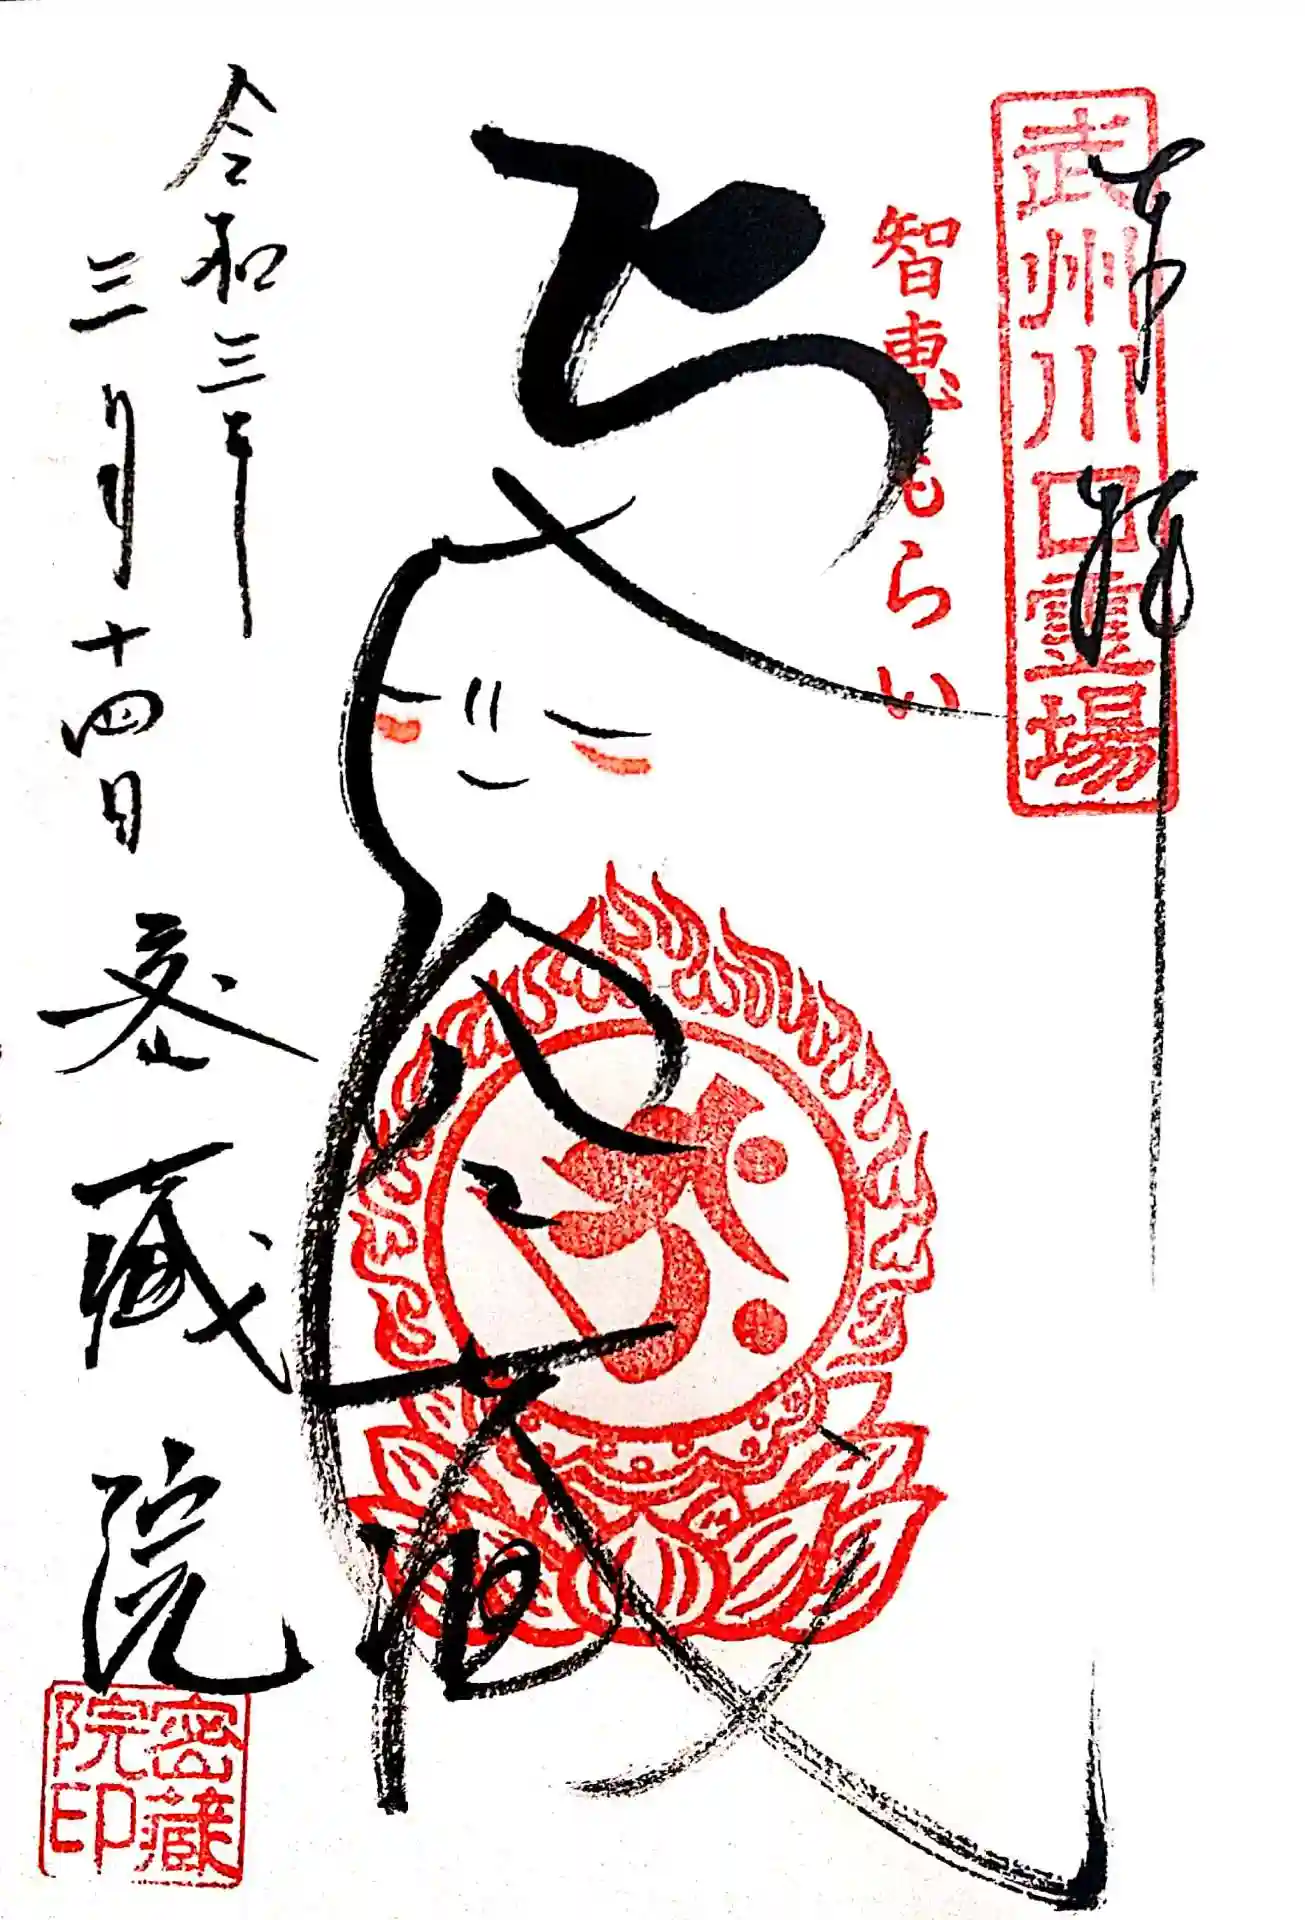 奉拝
武州川口霊場
智恵もらい
地蔵
令和三年
三月十四日
密蔵院
密蔵院印